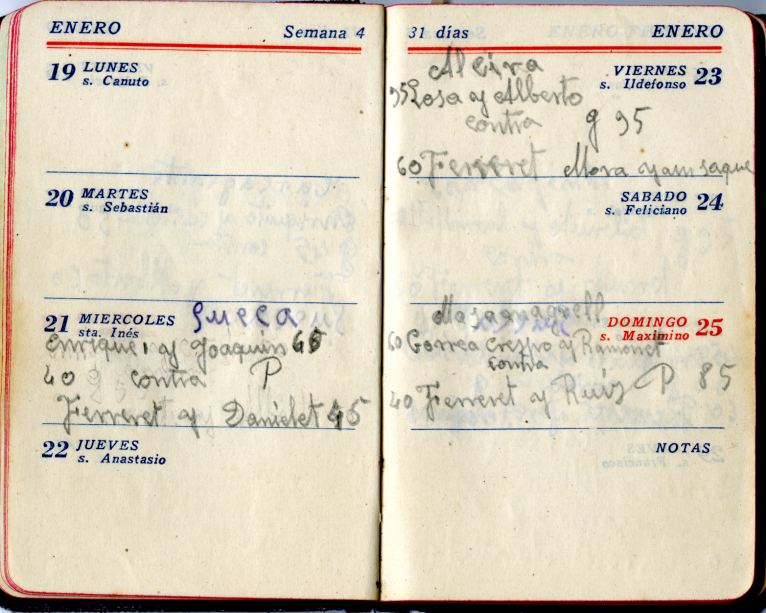 ENERO Semana 4
19 LUNES
s. Canuto
20 MARTES
s. Sebastián
21 MIERCOLES Sueca
sta. Inés
Enrique, y Joaquin 45
40 contra P
Ferreret y Danielet 45
22 JUEVES
s. Anastasio
31 días ENERO
VIERNES 23
s. Ildefonso
Alcira
95 Rosa y Alberto
contra g 95
60 Ferreret Mora
SABADO 24
s. Feliciano
DOMINGO 25
s. Maximino
Masanasell
60 Correa Crespo y Ramonet
contra
40 Ferreret y Ruiz P 85
NOTAS